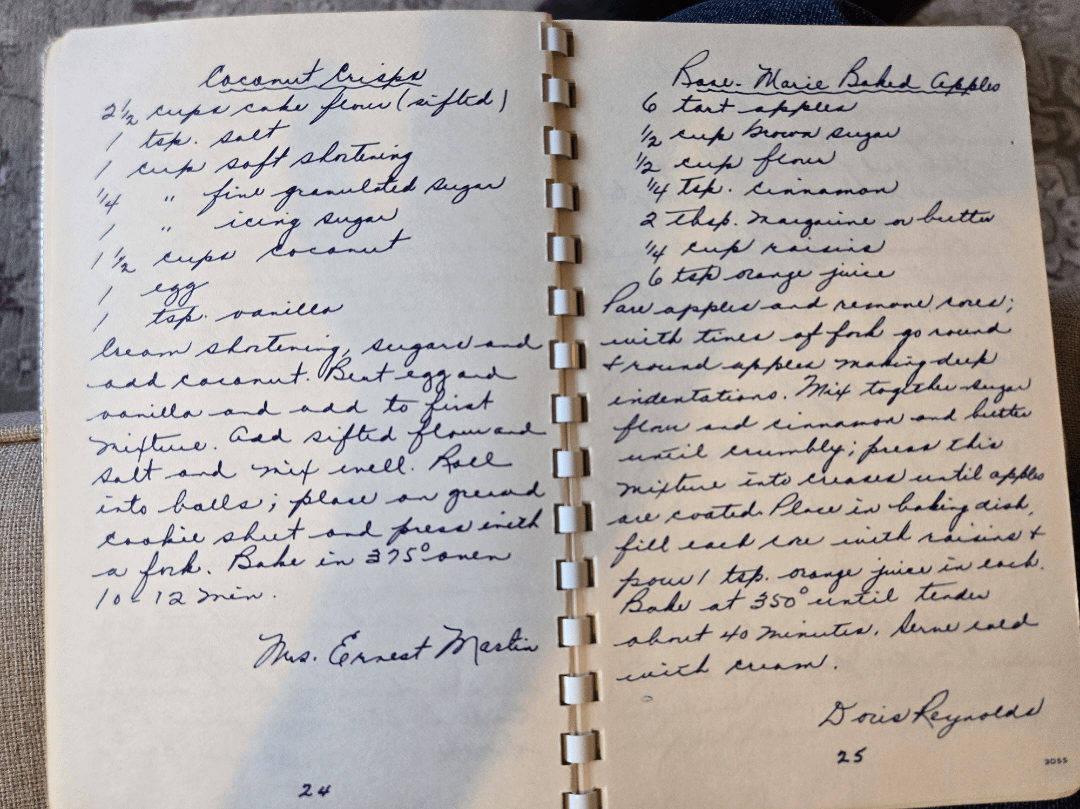 Coconut Crisps
2 1/2 cups cake flour (sifted)
1 tsp. salt
1 cup soft shortening
1/4 " fine granulated sugar
1 " icing sugar
1 1/2 cups coconut
1 egg
1 tsp. vanilla
Cream shortening, sugars and
add coconut. Beat egg and
vanilla and add to first
mixture. Add sifted flour and
salt and mix well. Roll
into balls; place on greased
cookie sheet and press with
a fork. Bake in 375° oven
10-12 min.
Mrs. Ernest Martin
24
Rose-Marie Baked Apples
6 tart apples
1/2 cup brown sugar
1/2 cup flour
1/4 tsp. cinnamon
2 tbsp. margarine or butter
1/4 cup raisins
6 tsp orange juice
Pare apples and remove cores;
with tines of fork go round
+ round apples making deep
indentations. Mix together sugar
flour and cinnamon and butter
until crumbly; press this
mixture into creases until apples
are coated. Place in baking dish,
fill each core with raisins +
pour 1 tsp. orange juice in each.
Bake at 350° until tender
about 40 minutes. Serve cold
with cream.
Doris Reynolds
25
3055